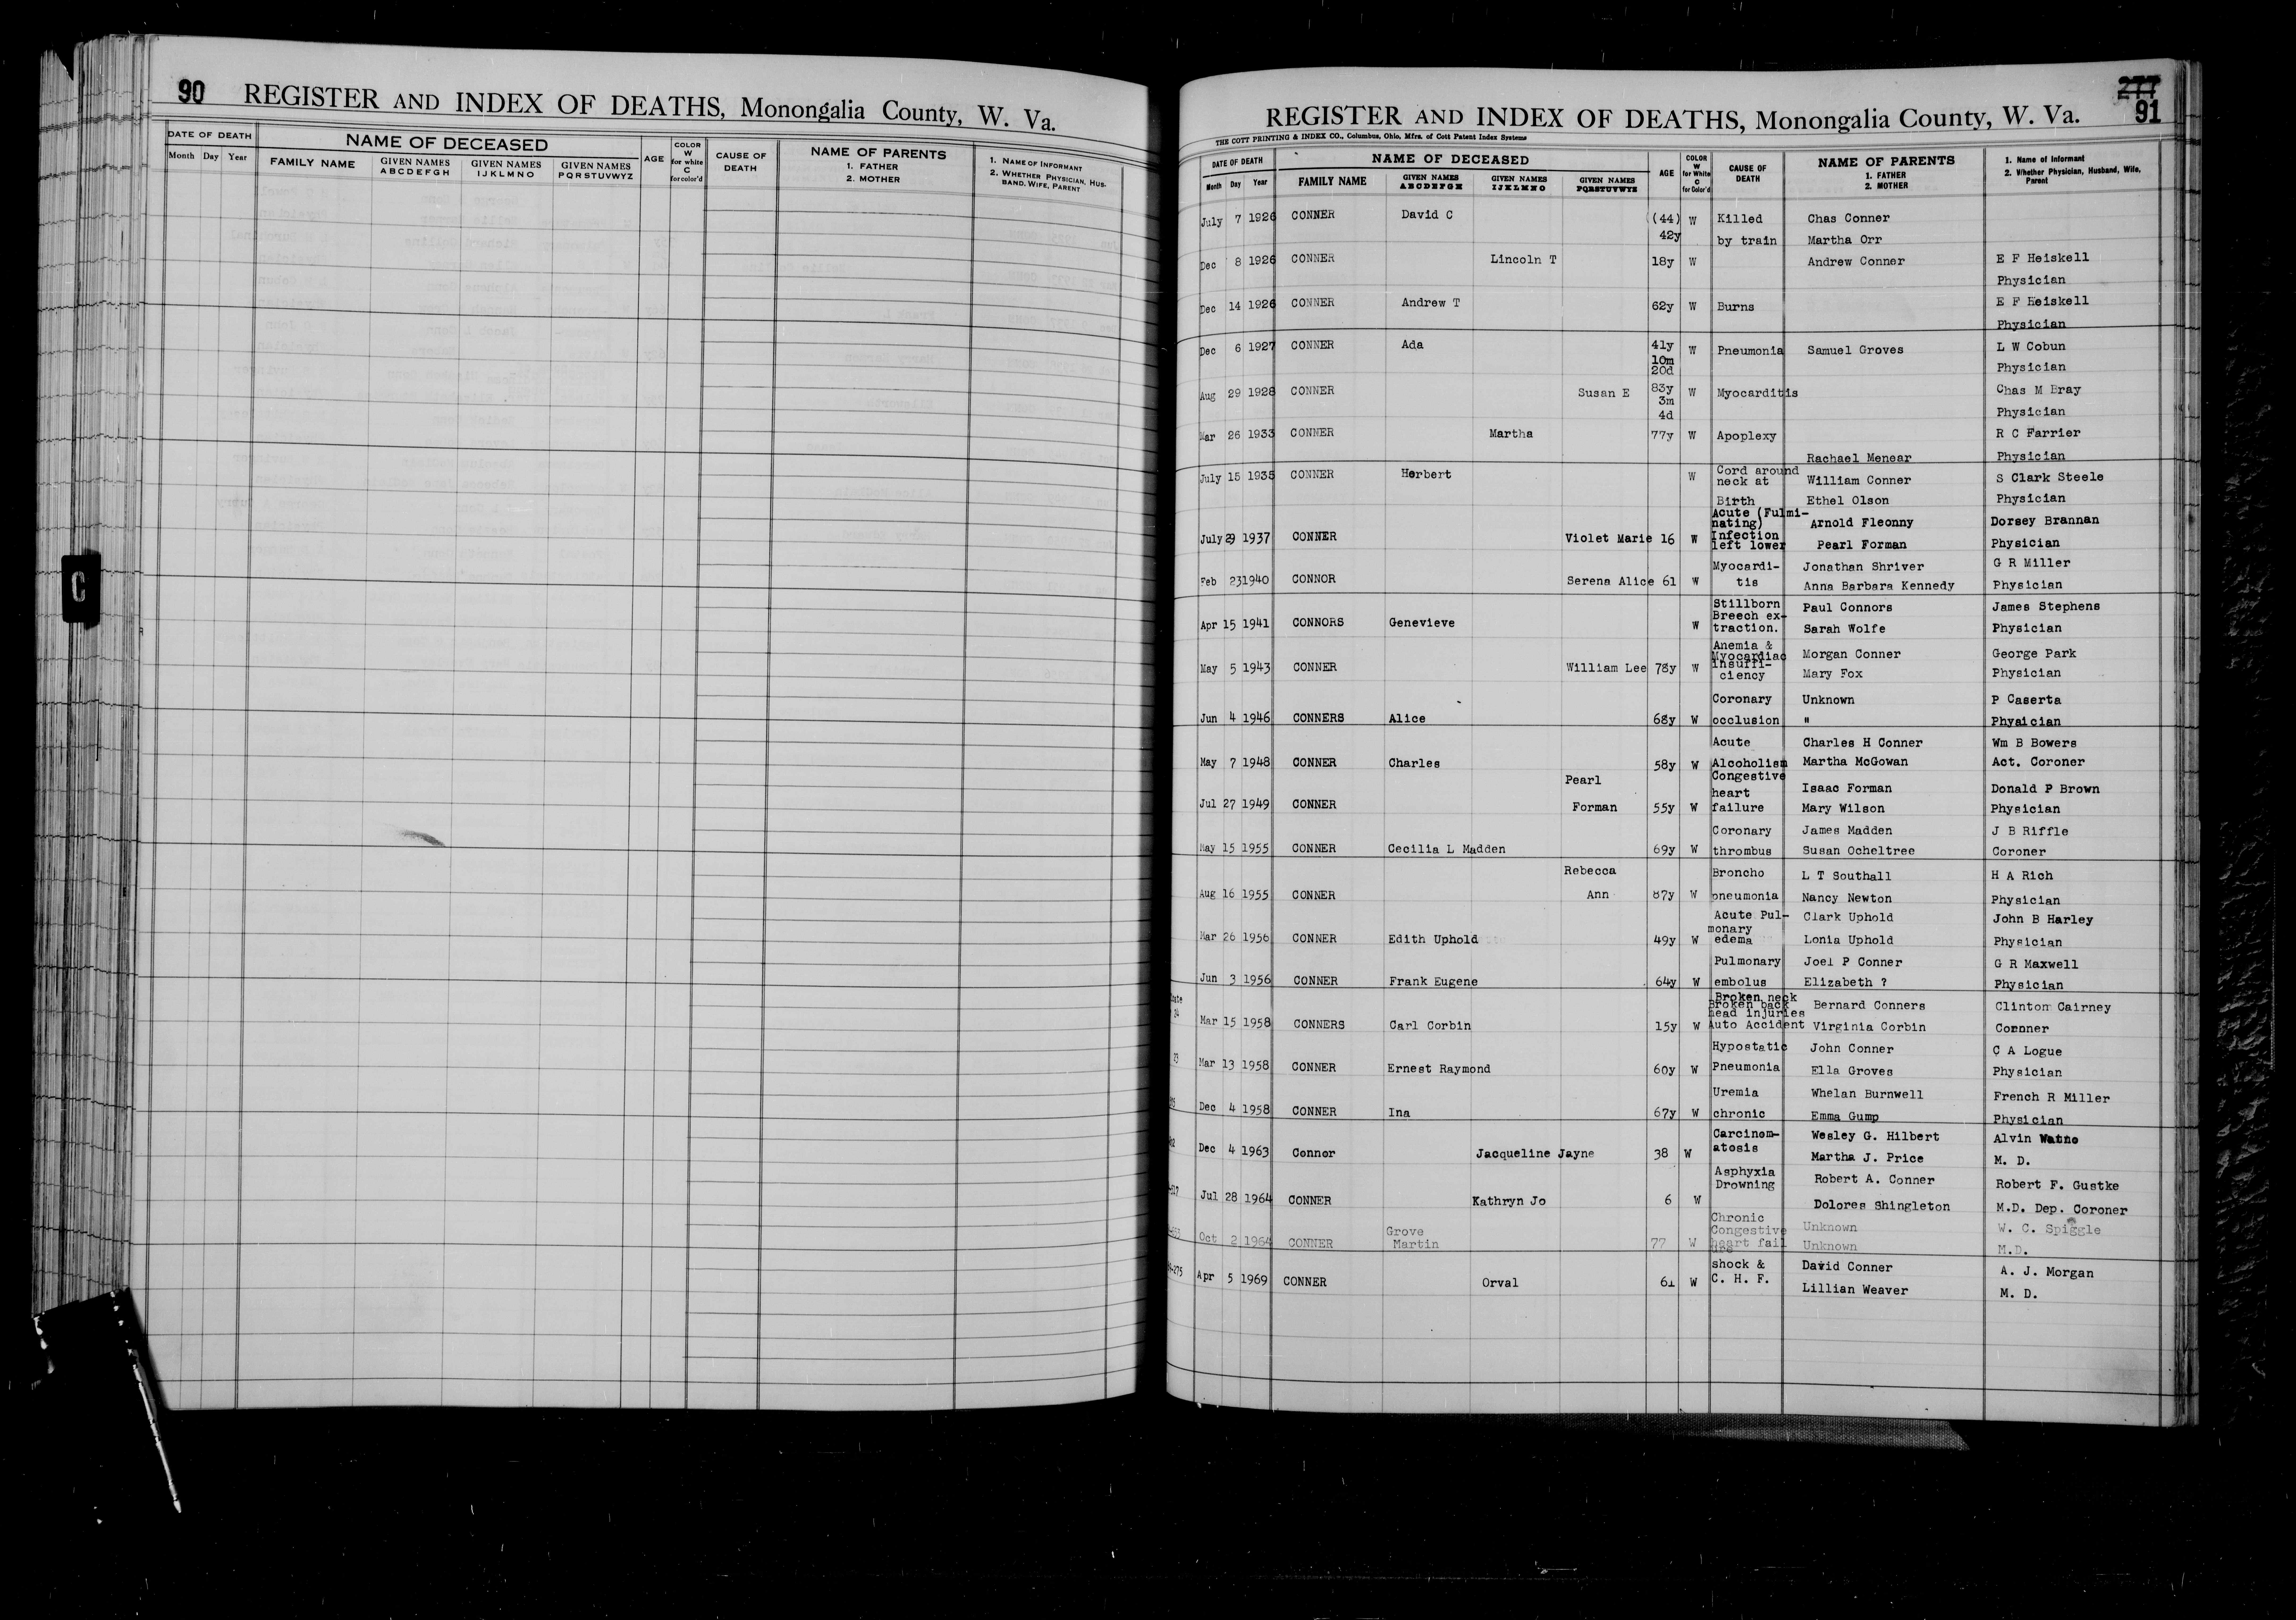 90 REGISTER AND INDEX OF DEATHS, Monongalia County, W. Va.
DATE OF DEATH NAME OF DECEASED AGE COLOR W for white C for color'd CAUSE OF DEATH NAME OF PARENTS 1. FATHER 2. MOTHER 1. NAME OF INFORMANT 2. WHETHER PHYSICIAN, HUSBAND, WIFE, PARENT
Month Day Year FAMILY NAME GIVEN NAMES ABCDEFGH GIVEN NAMES IJKLMNO GIVEN NAMES PQRSTUVWYZ
C
277
91
REGISTER AND INDEX OF DEATHS, Monongalia County, W. Va.
THE COTT PRINTING & INDEX CO., Columbus, Ohio, Mfrs. of Cott Patent Index Systems
DATE OF DEATH NAME OF DECEASED AGE COLOR W for White C for Color'd CAUSE OF DEATH NAME OF PARENTS 1. FATHER 2. MOTHER 1. Name of Informant 2. Whether Physician, Husband, Wife, Parent
Month Day Year FAMILY NAME GIVEN NAMES ABCDEFGH GIVEN NAMES IJKLMNO GIVEN NAMES PQRSTUVWYZ
July 7 1926 CONNER David C (44) W Killed Chas Conner
42y by train Martha Orr
Dec 8 1926 CONNER Lincoln T 18y W Andrew Conner E F Heiskell
Physician
Dec 14 1926 CONNER Andrew T 62y W Burns E F Heiskell
Physician
Dec 6 1927 CONNER Ada 41y W Pneumonia Samuel Groves L W Cobun
10m
20d Physician
Aug 29 1928 CONNER Susan E 83y W Myocarditis Chas M Bray
3m
4d Physician
Mar 26 1933 CONNER Martha 77y W Apoplexy R C Farrier
Rachael Menear Physician
July 15 1935 CONNER Herbert W Cord around
neck at William Conner S Clark Steele
Birth Ethel Olson Physician
Acute (Fulmi-
nating) Arnold Fleonny Dorsey Brannan
July 29 1937 CONNER Violet Marie 16 W Infection
left lower Pearl Forman Physician
Myocardi- Jonathan Shriver G R Miller
Feb 23 1940 CONNOR Serena Alice 61 W tis Anna Barbara Kennedy Physician
Stillborn Paul Connors James Stephens
Breech ex-
Apr 15 1941 CONNORS Genevieve W traction. Sarah Wolfe Physician
Anemia & Morgan Conner George Park
Myocardiac
May 5 1943 CONNER William Lee 78y W Insuffi-
ciency Mary Fox Physician
Coronary Unknown P Caserta
Jun 4 1946 CONNERS Alice 68y W occlusion " Physician
Acute Charles H Conner Wm B Bowers
May 7 1948 CONNER Charles 58y W Alcoholism Martha McGowan Act. Coroner
Pearl Congestive
heart Isaac Forman Donald P Brown
Jul 27 1949 CONNER Forman 55y W failure Mary Wilson Physician
Coronary James Madden J B Riffle
May 15 1955 CONNER Cecilia L Madden 69y W thrombus Susan Ocheltree Coroner
Rebecca Broncho L T Southall H A Rich
Aug 16 1955 CONNER Ann 87y W pneumonia Nancy Newton Physician
Acute Pul- Clark Uphold John B Harley
monary
Mar 26 1956 CONNER Edith Uphold 49y W edema Lonia Uphold Physician
Pulmonary Joel P Conner G R Maxwell
Jun 3 1956 CONNER Frank Eugene 64y W embolus Elizabeth ? Physician
Broken neck
Broken back Bernard Conners Clinton Cairney
head injuries
Mar 15 1958 CONNERS Carl Corbin 15y W Auto Accident Virginia Corbin Coroner
Hypostatic John Conner C A Logue
Mar 13 1958 CONNER Ernest Raymond 60y W Pneumonia Ella Groves Physician
Uremia Whelan Burnwell French R Miller
Dec 4 1958 CONNER Ina 67y W chronic Emma Gump Physician
Carcinom- Wesley G. Hilbert Alvin
Dec 4 1963 Connor Jacqueline Jayne 38 W atosis Martha J. Price M. D.
Asphyxia Robert A. Conner Robert F. Gustke
Drowning
Jul 28 1964 CONNER Kathryn Jo 6 W Dolores Shingleton M.D. Dep. Coroner
Chronic
Grove Congestive Unknown W. C. Spiggle
Oct 2 1964 CONNER Martin 77 W heart fail
ure Unknown M.D.
shock & David Conner A. J. Morgan
Apr 5 1969 CONNER Orval 61 W C. H. F. Lillian Weaver M. D.